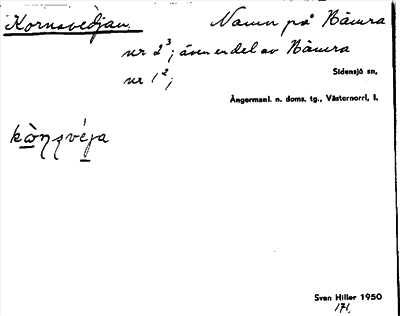 Kornsvedjan. Namn på Nämra
nr 2³; även en del av Nämra
nr 1²;
Sidensjö sn,
Ångermanl. n. doms. tg., Västernorrl. l.
Sven Hiller 1950
171.